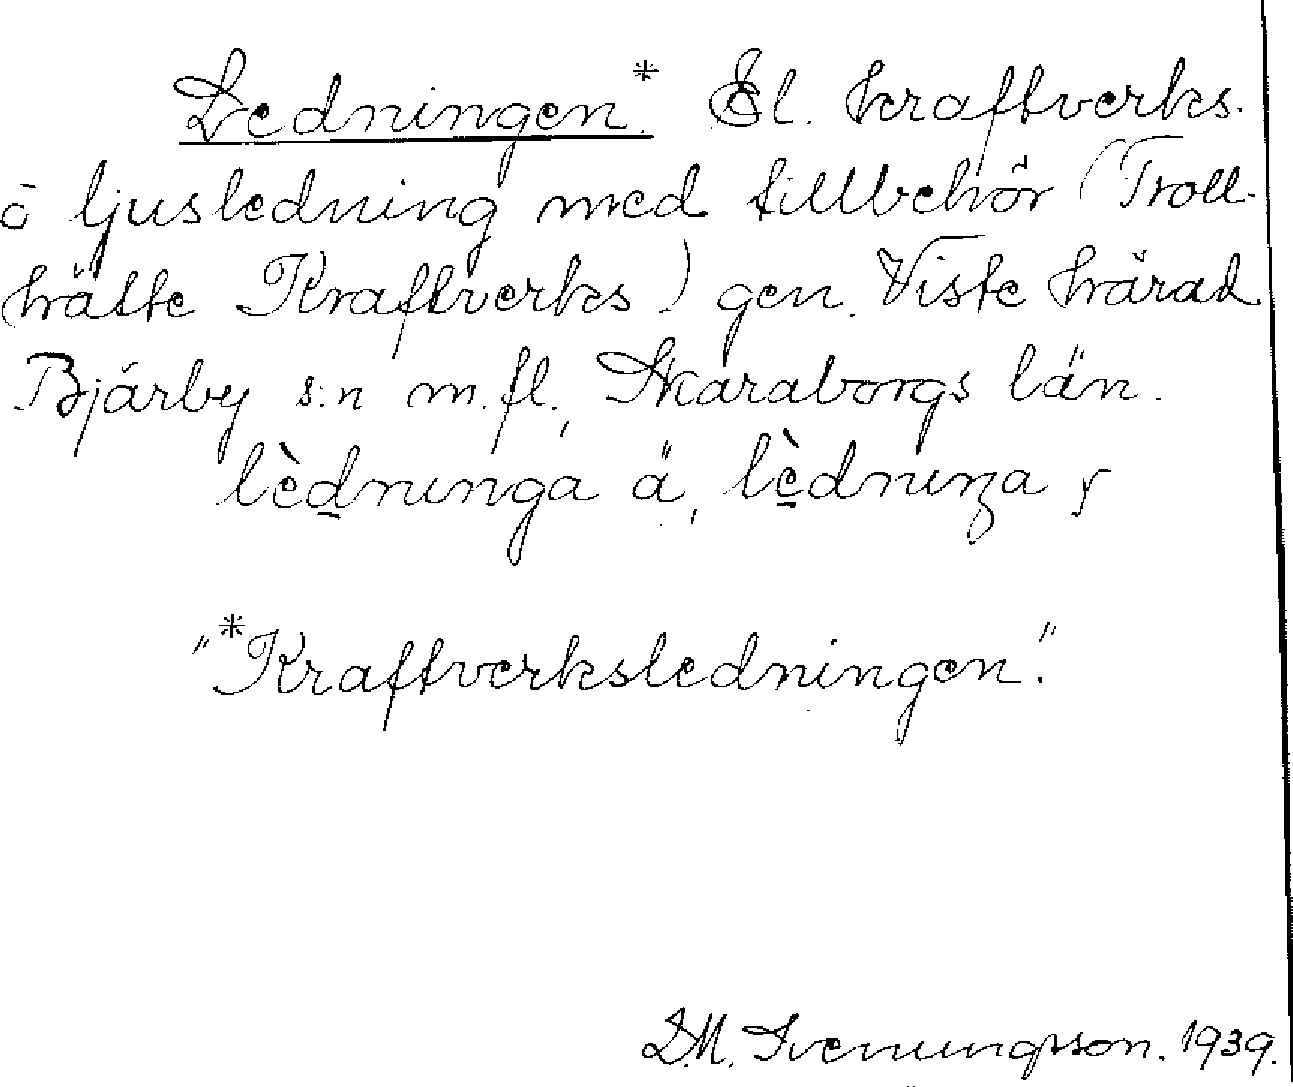 Ledningen.* El. kraftverks-
o ljusledning med tillbehör (Troll-
hätte Kraftverks) gen. Viste härad
Bjärby s:n m.fl., Skaraborgs län.
lèdnınga ä, lèdnıŋa
"*Kraftverksledningen."
D.M. Svenungsson. 1939.